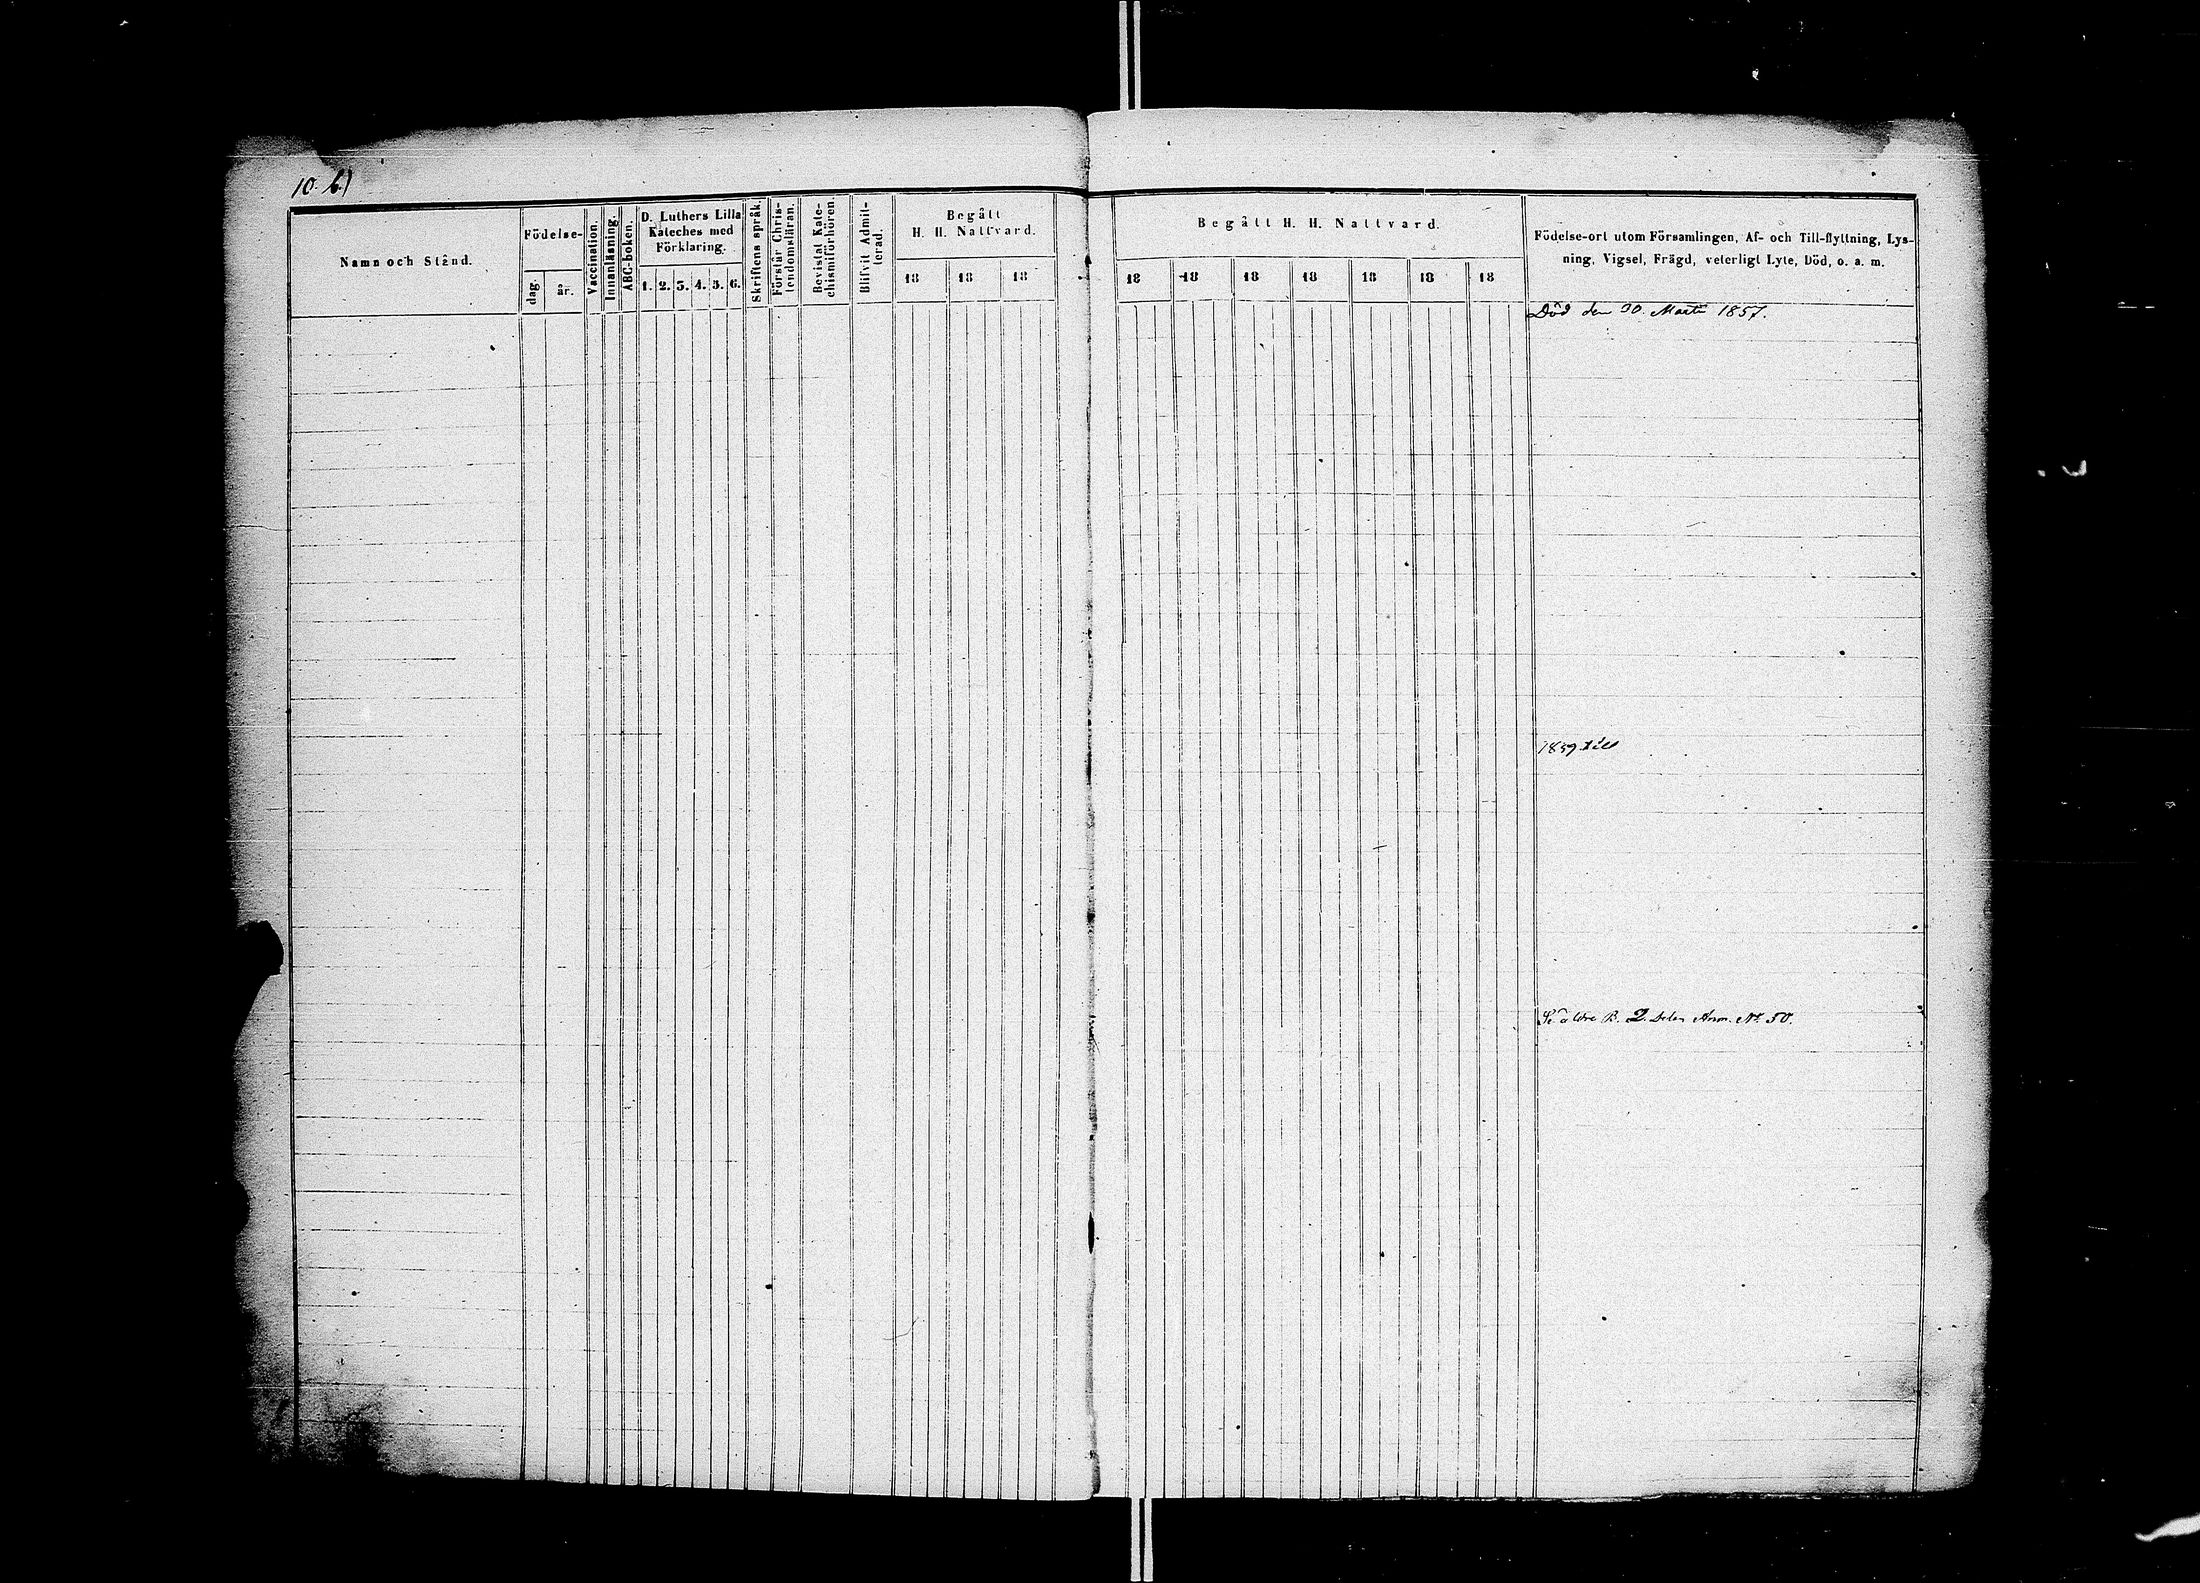 10. 6)
Namn och Stånd.
Födelse-
dag.
år.
Vaccination.
Innanläsning.
ABC-boken.
D. Luthers Lilla
Kateches med
Förklaring.
1. 2. 3. 4. 5. 6.
Skriftens språk.
Förstår Chris-
tendomsläran.
Bevistat Kate-
chismiförhören.
Blifvit Admit-
terad.
Begått
H. H. Nattvard.
18 18 18
Begått H. H. Nattvard.
18 18 18 18 18 18 18
Födelse-ort utom Församlingen, Af- och Till-flyttning, Lys-
ning, Vigsel, Frägd, veterligt Lyte, Död, o. a. m.
Död den 30. Martii 1857.
1859 till
Se äldre B. 2. Delen Anm. No. 50.